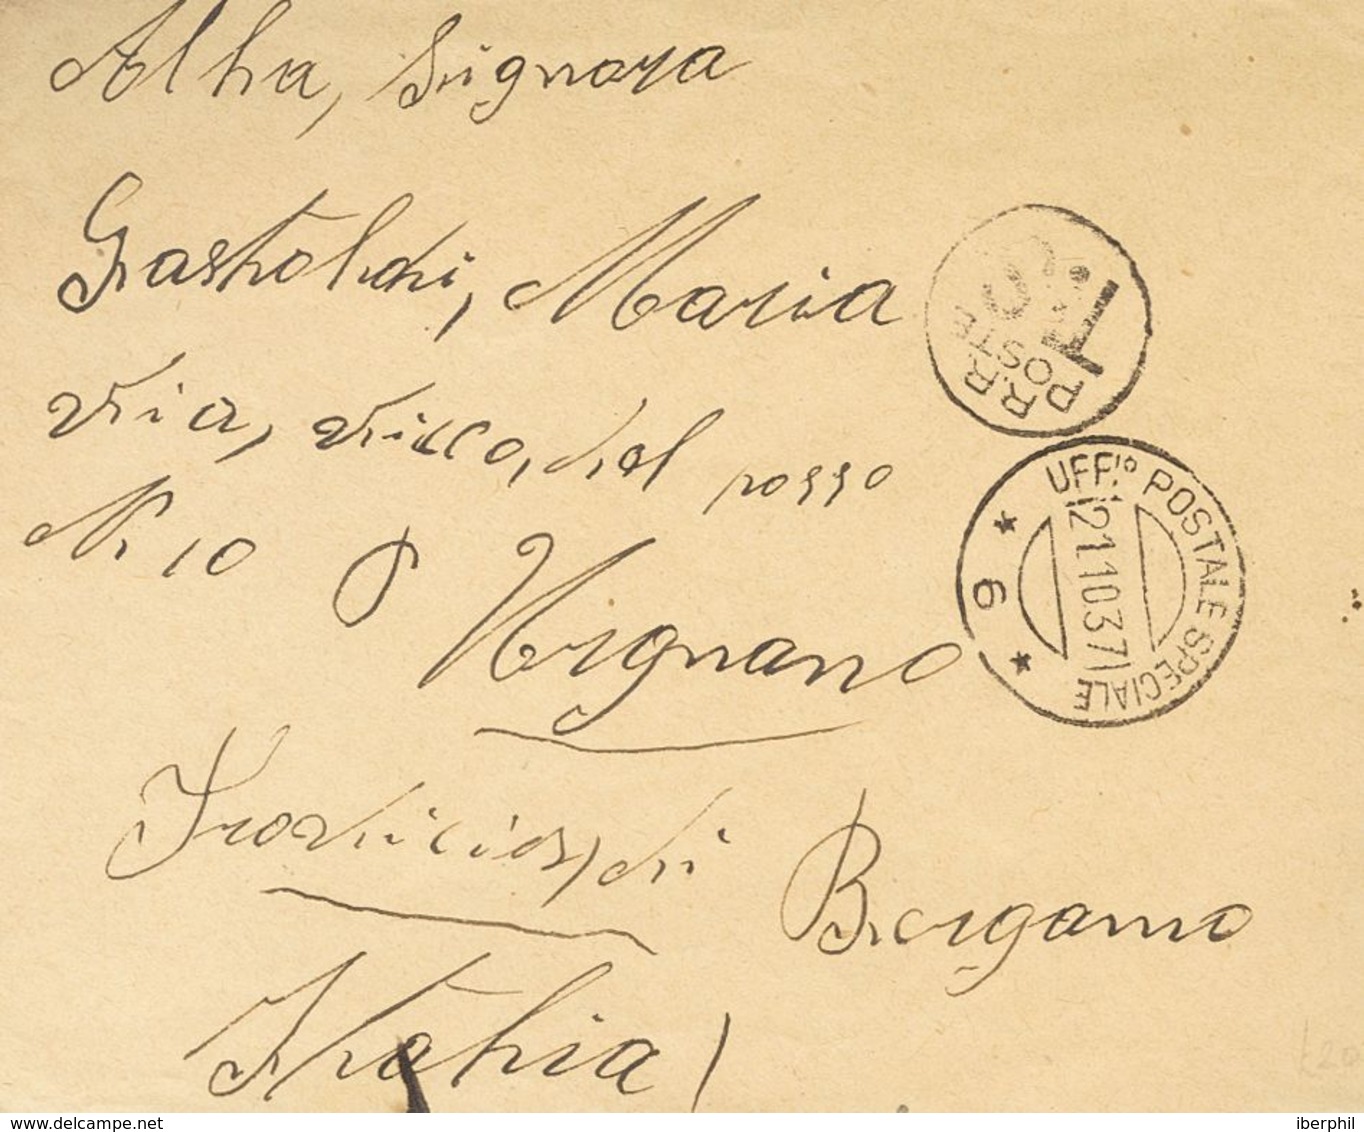 Alla, Signora
Gastoldi, Maria
via, vicco, del posso
Nr 10
Urgnano
Provincia, di Bergamo
Italia
R.R.
POSTE
T
UFF.º POSTALE SPECIALE
21.10.37
* 6 *
iberphil